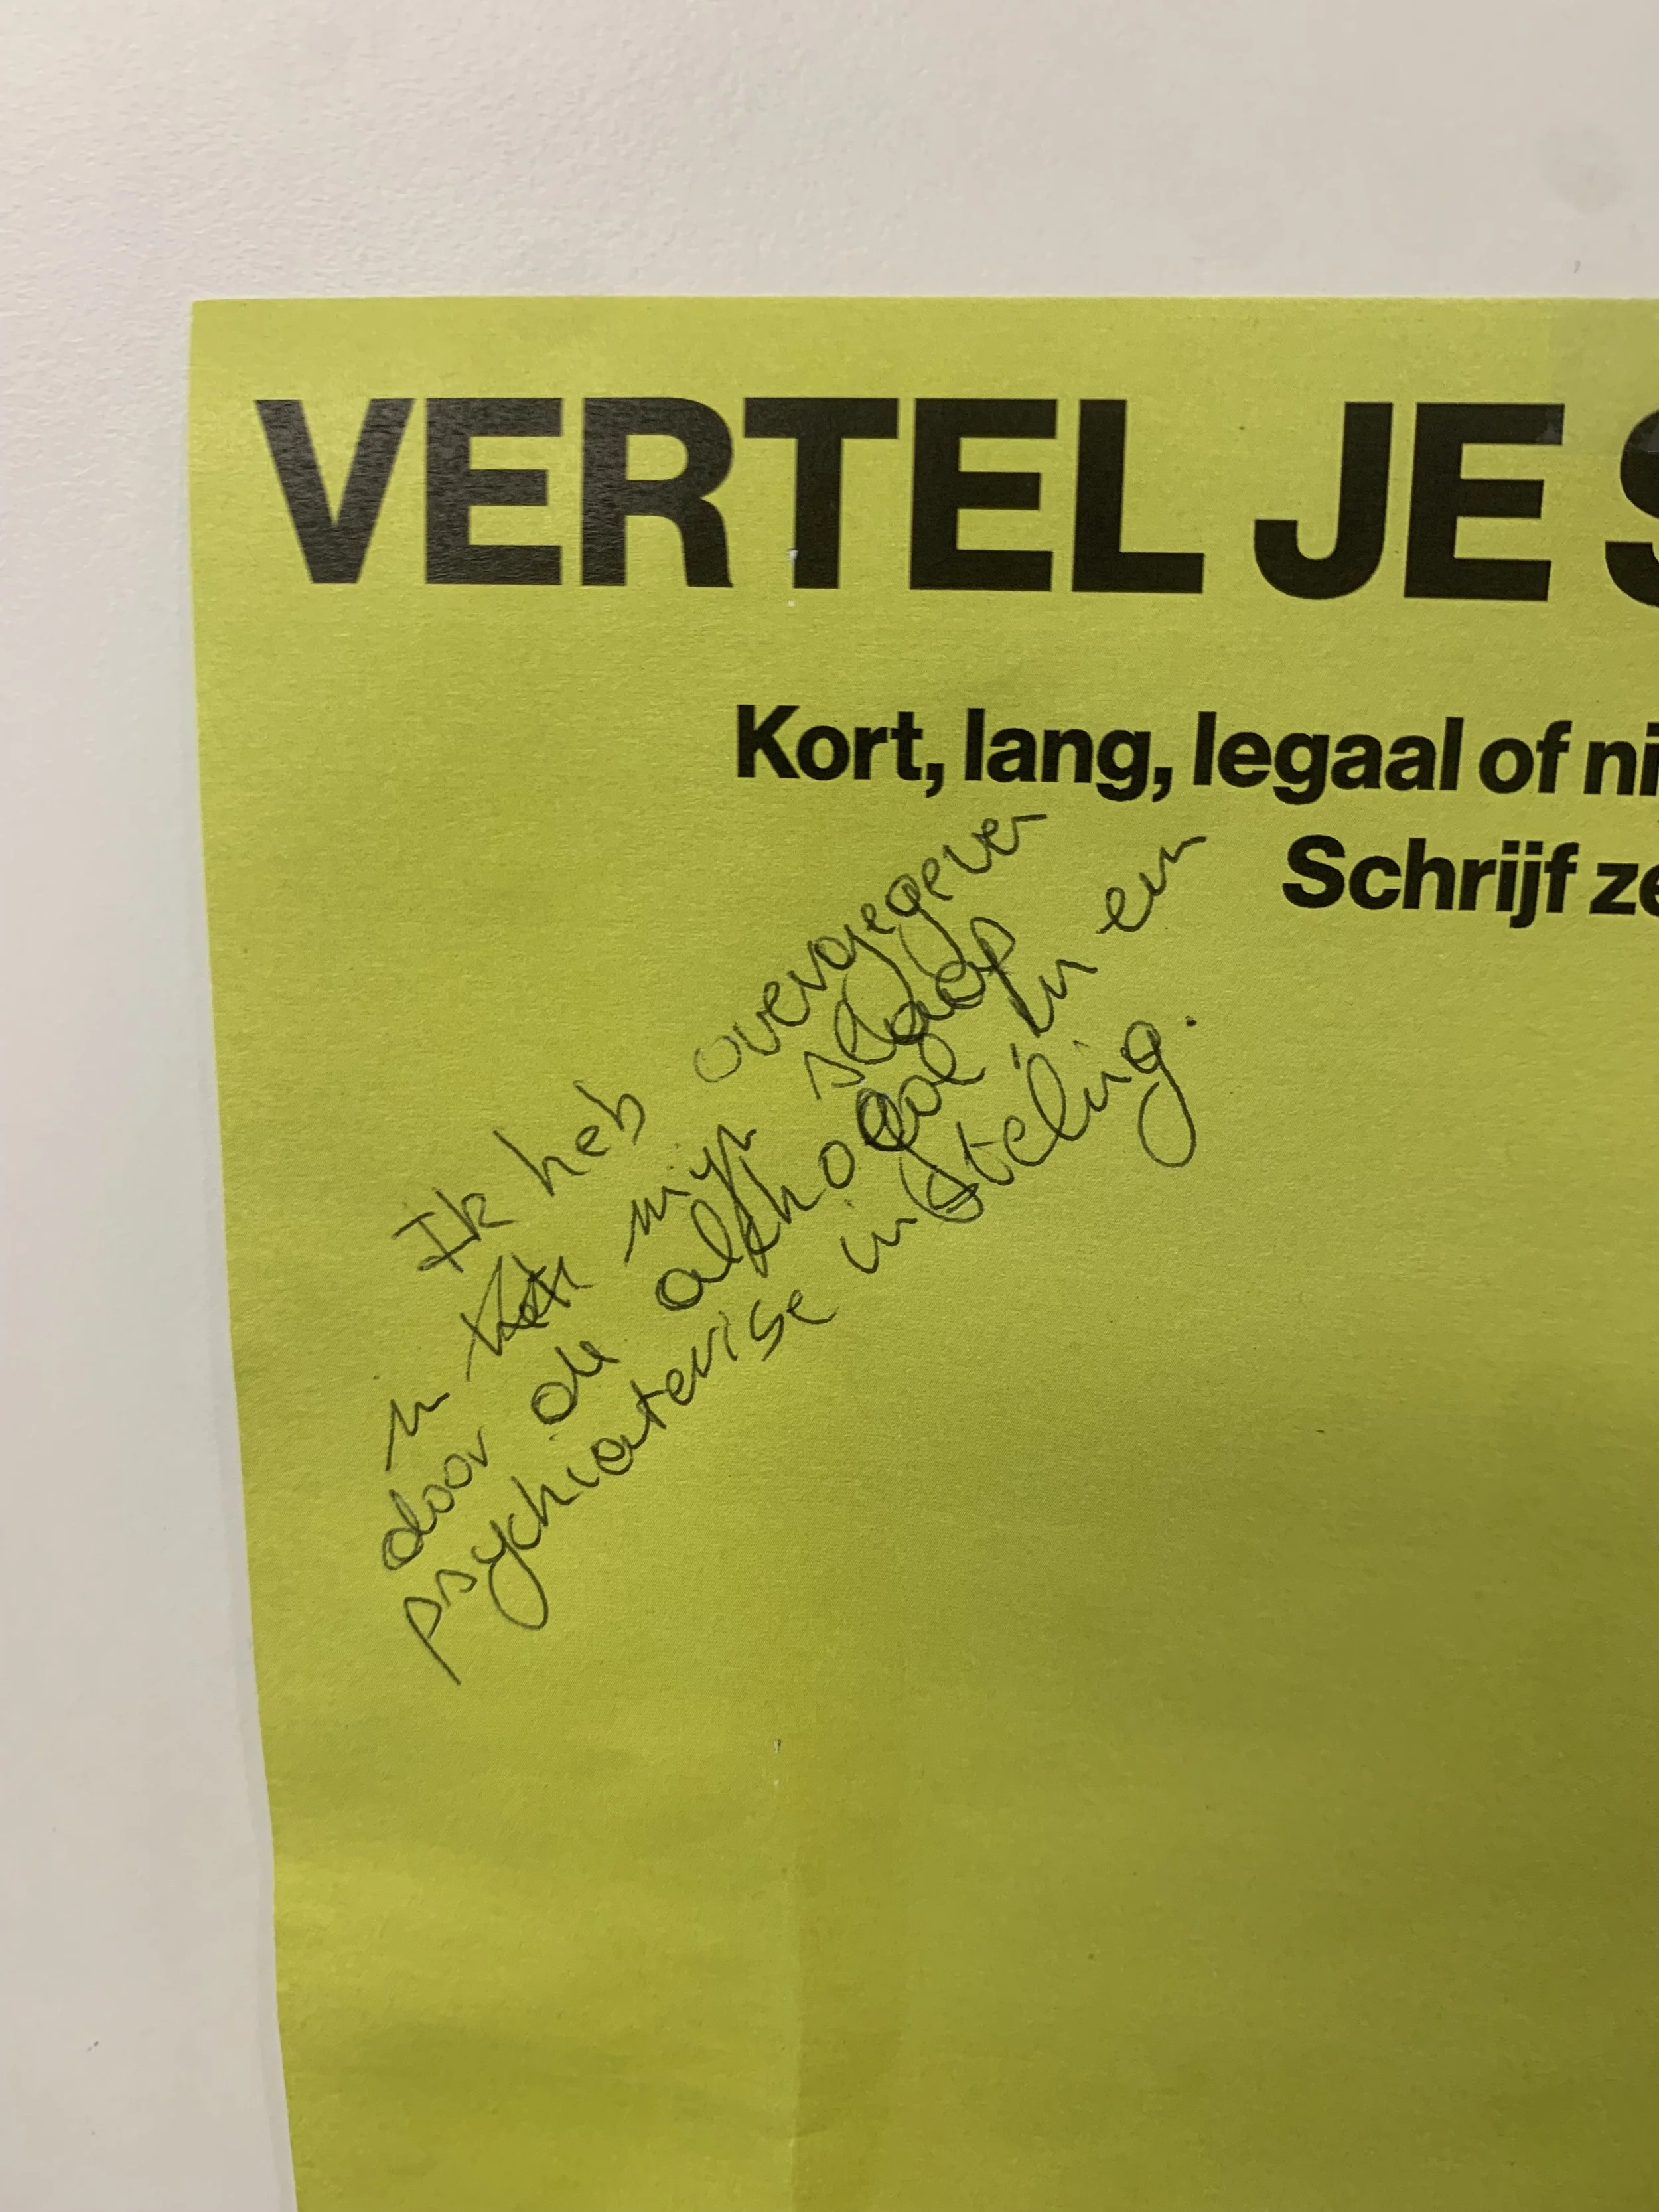 VERTEL JE S
Kort, lang, legaal of ni
Schrijf ze
Ik heb overgegeven
in mijn slaap
door de alkhohol in een
psychiaterise insteling.